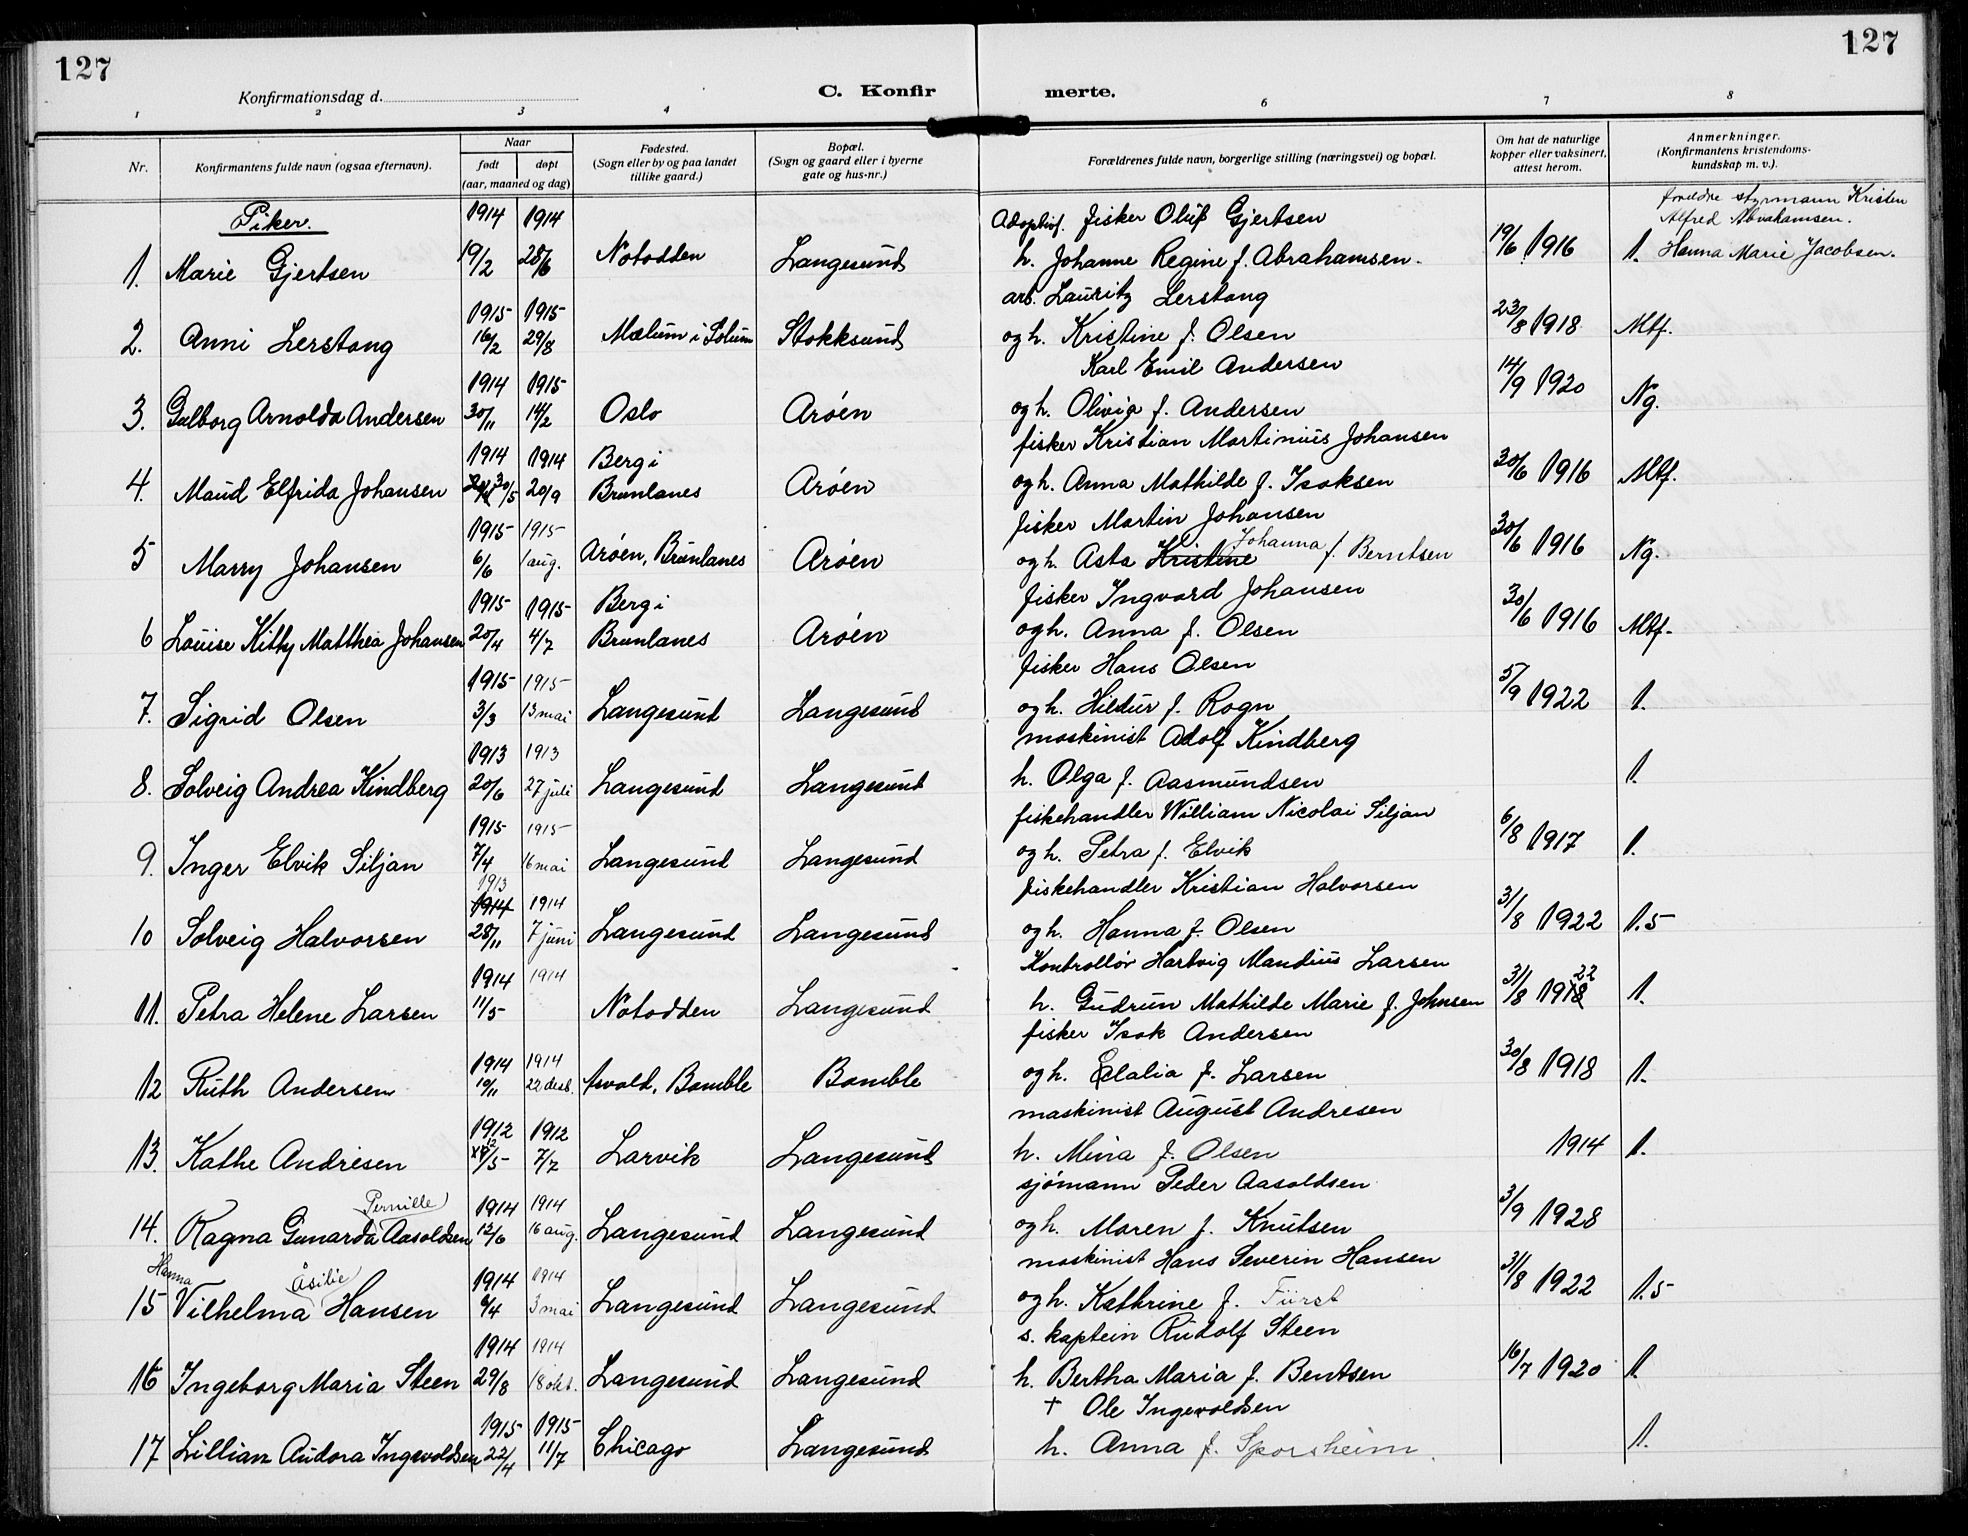 127
127
Konfirmationsdag d.
C. Konfir
merte.
1 2 3 4 5 6 7 8
Nr. Konfirmantens fulde navn (ogsaa efternavn). Naar født døpt (aar, maaned og dag) Fødested. (Sogn eller by og paa landet tillike gaard.) Bopæl. (Sogn og gaard eller i byerne gate og hus-nr.) Forældrenes fulde navn, borgerlige stilling (næringsvei) og bopæl. Om hat de naturlige kopper eller vaksinert, attest herom. Anmerkninger. (Konfirmantens kristendoms-kundskap m. v.).
Piker. 1914 1914 Adoptivf. fisker Oluf Gjertsen foreldre styrmann Kristen Alfred Abrahamsen.
1. Marie Gjertsen 19/2 28/6 Notodden Langesund h. Johanne Regine f. Abrahamsen. 19/6 1916 1. Hanna Marie Jacobsen.
1915 1915 arb. Lauritz Lerstang
2. Anni Lerstang 16/2 29/8 Mælum i Solum Stokksund og h. Kristine f. Olsen 23/8 1918 Mtf.
1914 1915 Karl Emil Andersen
3. Gulborg Arnolda Andersen 30/11 14/2 Oslo Arøen og h. Olivia f. Andersen 14/9 1920 Ng.
1914 1914 Berg i fisker Kristian Martinius Johansen
4. Maud Elfrida Johansen 30/5 20/9 Brunlanes Arøen og h. Anna Mathilde f. Isaksen 30/6 1916 Mtf.
1915 1915 fisker Martin Johansen
5 Marry Johansen 6/6 1 aug. Arøen, Brunlanes Arøen og h. Asta Kristine Johanna f. Berntsen 30/6 1916 Ng.
1915 1915 Berg i fisker Ingvard Johansen
6 Louise Kitty Matthea Johansen 20/4 4/7 Brunlanes Arøen og h. Anna f. Olsen 30/6 1916 Mtf.
1915 1915 fisker Hans Olsen
7. Sigrid Olsen 3/3 13 mai Langesund Langesund og h. Hildur f. Rogn 5/9 1922 1.
1913 1913 maskinist Adolf Kindberg
8. Solveig Andrea Kindberg 20/6 27 juli Langesund Langesund h. Olga f. Aasmundsen 1.
1915 1915 fiskehandler William Nicolai Siljan
9. Inger Elvik Siljan 7/4 16 mai Langesund Langesund og h. Petra f. Elvik 6/8 1917 1.
1913 1914 1914 fiskehandler Kristian Halvorsen
10 Solveig Halvorsen 28/11 7 juni Langesund Langesund og h. Hanna f. Olsen 31/8 1922 1.5
1914 1914 Kontrollör Hartvig Mandius Larsen
11. Petra Helene Larsen 11/5 Notodden Langesund h. Gudrun Mathilde Marie f. Johnsen 31/8 1918 22 1.
1914 1914 fisker Isak Andersen
12 Ruth Andersen 10/11 22 des. Åsvold, Bamble Bamble og h. Elalia f. Larsen 30/8 1918 1.
1912 1912 maskinist August Andresen
13. Kathe Andresen 12/5 7/7 Larvik Langesund h. Mina f. Olsen 1914 1.
Pernille 1914 1914 sjømann Peder Aasoldsen
14. Ragna Gunarda Aasoldsen 12/6 16 aug. Langesund Langesund og h. Maren f. Knutsen 3/9 1928
Hanna Åsilie 1914 1914 maskinist Hans Severin Hansen
15 Vilhelma Hansen 9/4 3 mai Langesund Langesund og h. Kathrine f. Fürst 31/8 1922 1.5
1914 1914 s. kaptein Rudolf Steen
16 Ingeborg Maria Steen 29/8 18 okt. Langesund Langesund h. Bertha Maria f. Bentsen 16/7 1920 1
1915 1915 † Ole Ingevoldsen
17 Lillian Audora Ingevoldsen 22/4 11/7 Chicago Langesund h. Anna f. Sporsheim. 1.